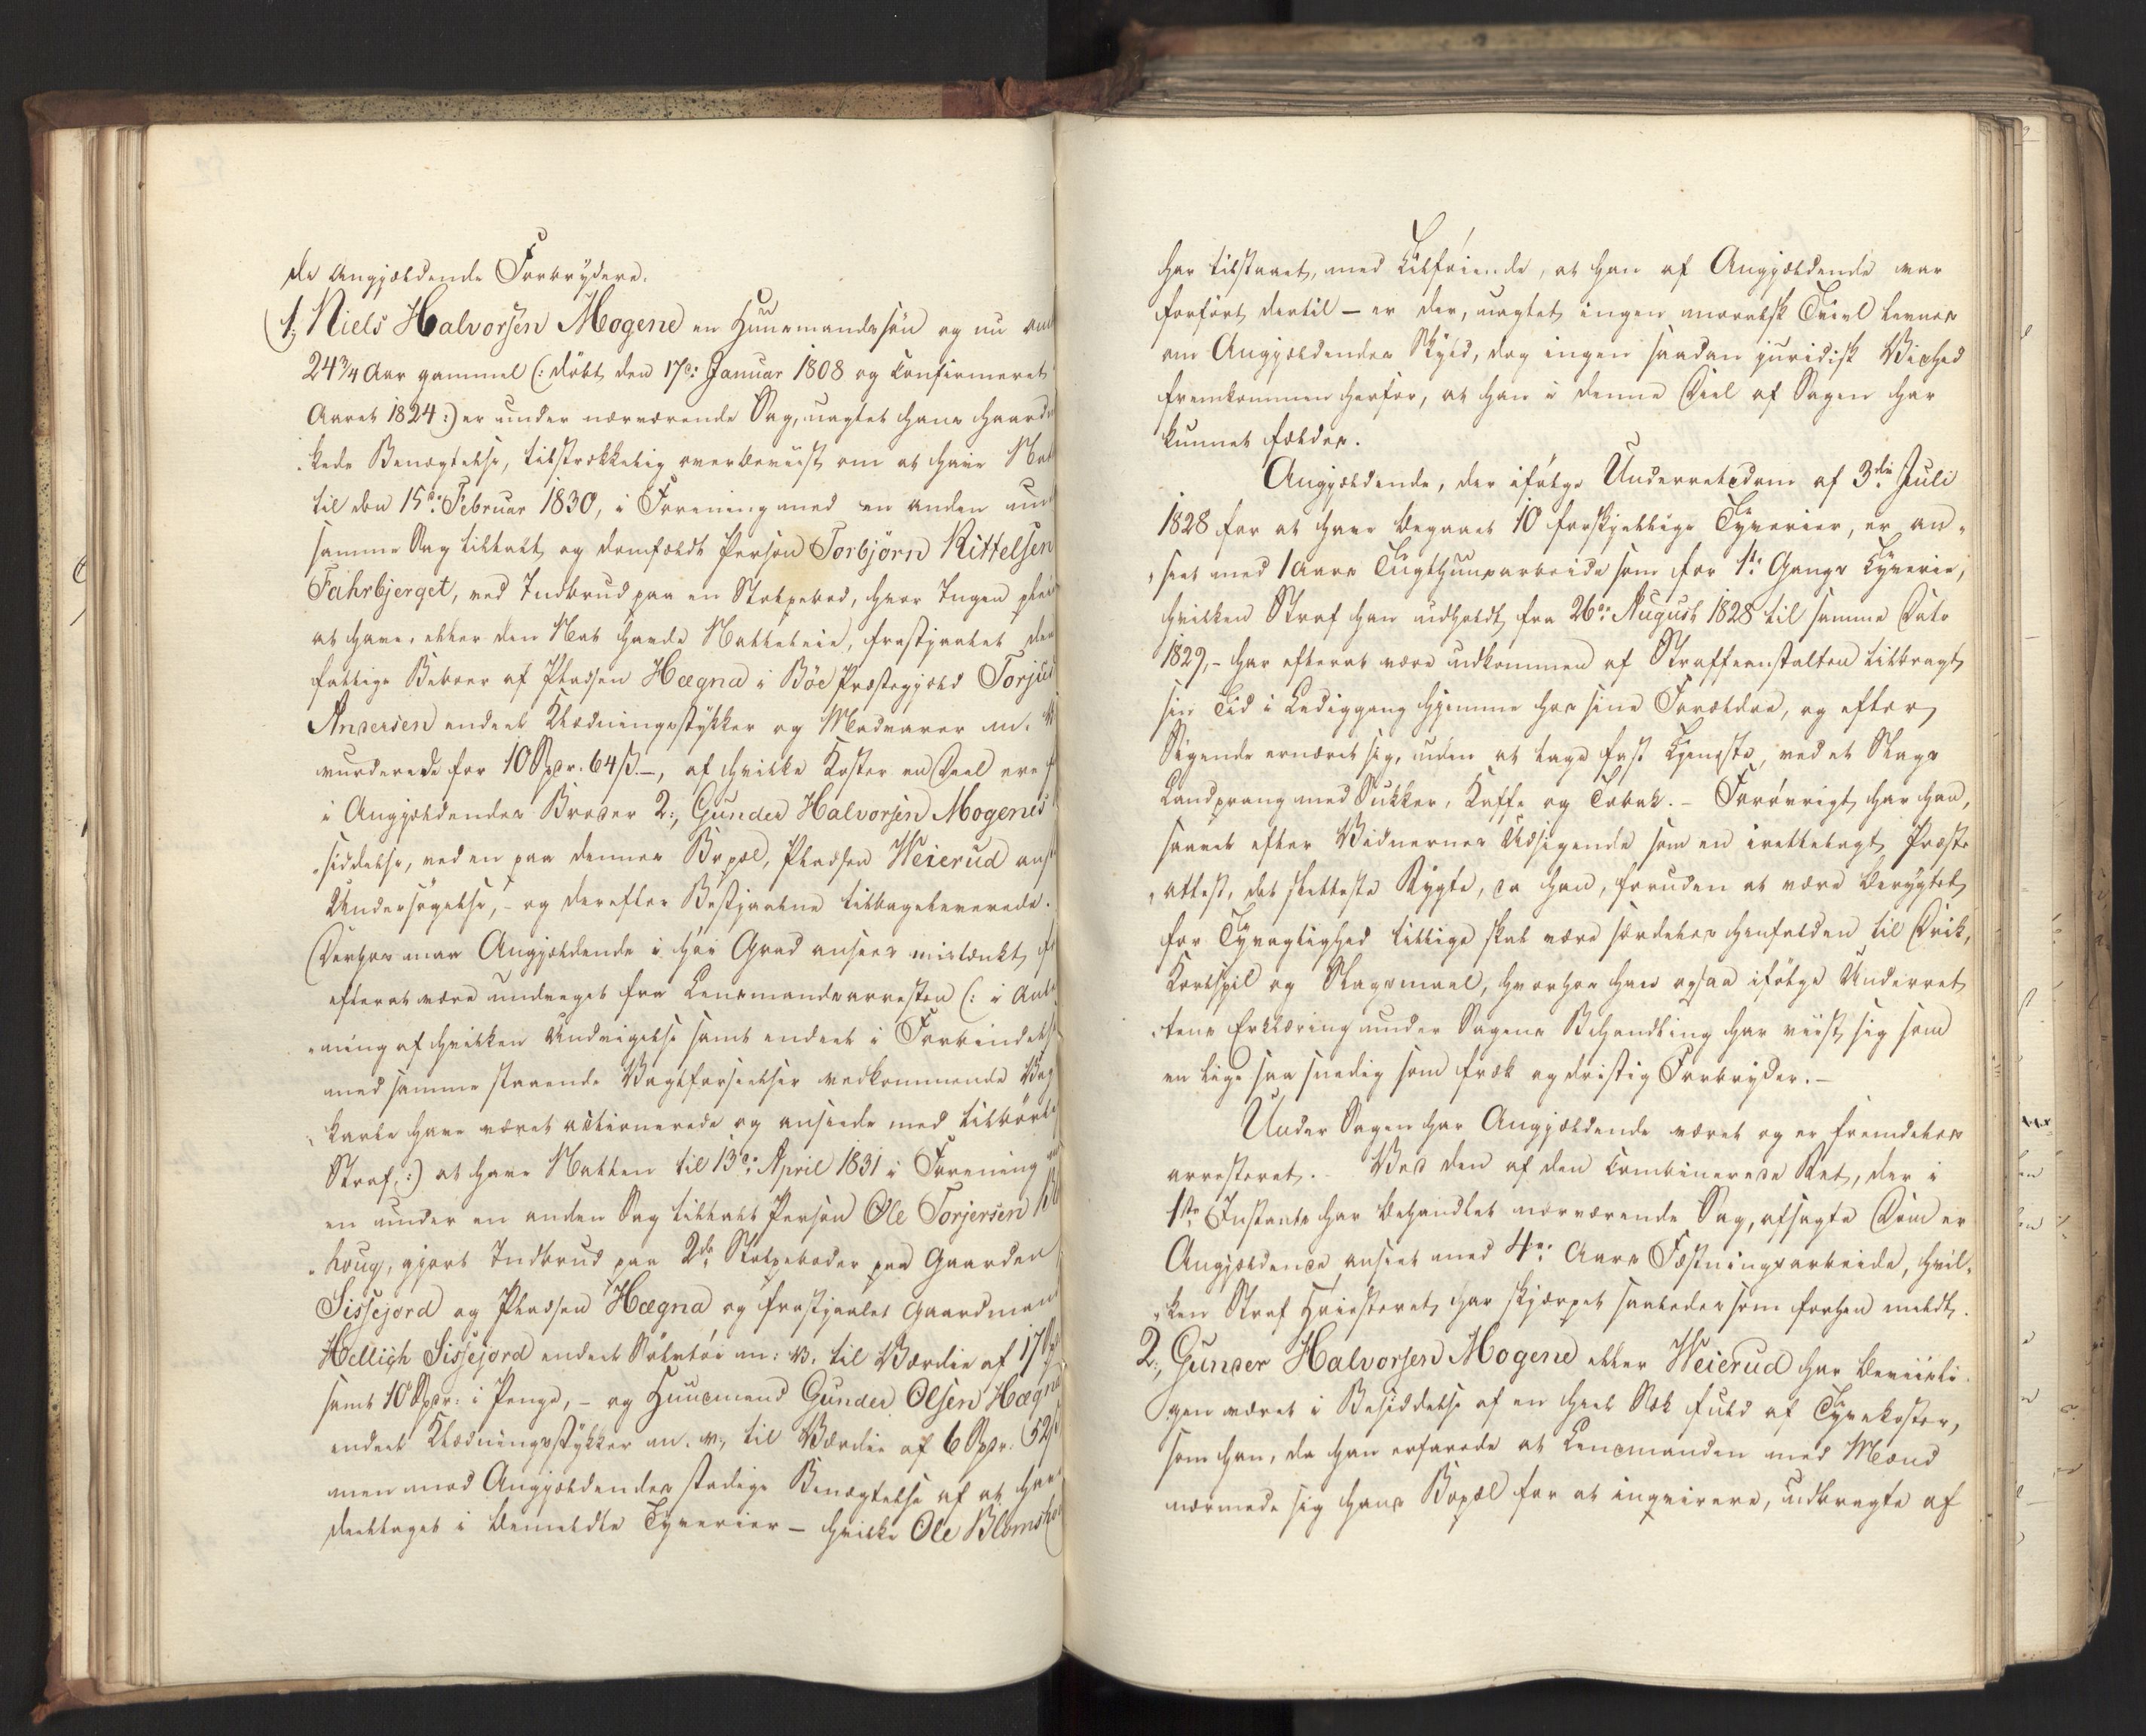 de angjældende Forbrydere.
1, Niels Halvorsen Mogene en Huusmandssøn og nu om
24 3/4 Aar gammel (: døbt den 17de Januar 1808 og confirmeret
Aaret 1824 :) er under nærværende Sag, uagtet hans haard
kede Benægtelse, tilstrækkelig overbeviist om at have Nat
til den 15de Februar 1830, i Forening med en anden un
samme Sag tiltalt og domfældt Person Torbjørn Kittelsen
Fahrbjerget, ved Indbrud paa en Stolpebod, hvor Ingen plei
at have, eller den Nat havde Natteleie, frastjaalet den
fattige Beboer af Pladsen Hægna i Bøe Præstegjæld Torjus
Andersen endeel Klædningsstykker og Madvarer m. V
vurderede for 10 Spdr. 64 ß. –, af hvilke Koster en Deel ere f
i Angjældendes Broder 2, Gunder Halvorsen Mogenes
siddelse, ved en paa dennes Bopæl, Pladsen Weierud anst
Undersøgelse, – og derefter Bestjaalne tilbageleverede.
Derhos maa Angjældende i høi Grad ansees mistænkt f
efterat være undveget fra Lensmandsarresten (: i Anle
ning af hvilken Undvigelse samt endeel i Forbindelse
med samme staaende Vagtforseelser vedkommende Vag
karle have været actionerede og ansete med tilbørl
Straf :) at have Natten til 13de April 1831 i Forening
en under en anden Sag tiltalt Person Ole Torjersen Bl
houg, gjort Indbrud paa 2de Stolpeboder paa Gaarden
Sissejord og Pladsen Hægna, og frastjaalet Gaardmand
Hellich Sissejord endeel Sølvtøi m: V. til Værdie af 17 Sp
samt 10 Spdr: i Penge, – og Huusmand Gunder Olsen Hægna
endeel Klædningsstykker m. v., til Værdie af 6 Spdr. 52 ß
men mod Angjældendes stadige Benægtelse af at have
deeltaget i bemeldte Tyverier – hvilke Ole Blomsho
har tilstaaet, med Tilføiende, at han af Angjældende var
forført dertil – er der, uagtet ingen moralsk Tvivl levnes
om Angjældendes Skyld, dog ingen saadan juridisk Vished
fremkommen herfor, at han i denne Deel af Sagen har
kunnet fældes.
Angjældende, der ifølge Underretsdom af 3die Juli
1828 for at have begaaet 10 forskjellige Tyverier, er an„
„seet med 1 Aars Tugthuusarbeide som for 1ste Gangs Tyverie,
hvilken Straf han udholdt fra 26de August 1828 til samme Dato
1829, – har efterat være udkommen af Straffeanstalten tilbragt
sin Tid i Lediggang hjemme hos sine Forældre, og efter
Sigende ernæret sig, uden at tage fast Tjeneste, ved et Slags
Landprang med Sukker, Kaffe og Tobak. – Forøvrigt har han,
saavel efter Vidnernes Udsigende som en irettelagt Præste
„attest, det sletteste Rygte, da han, foruden at være berygtet
for Tyvagtighed tillige skal være særdeles henfalden til Drik,
Kortspil og Slagsmaal, hvorhos han ogsaa ifølge Underret
„tens Erklæring under Sagens Behandling har viist sig som
en lige saa snedig som fræk og dristig Forbryder. –
Under Sagen har Angjældende været og er fremdeles
arresteret. Ved den af den combinerede Ret, der i
1ste Instants har behandlet nærværende Sag, afsagte Dom er
Angjældende anseet med 4re Aars Fæstningsarbeide, hvil„
„ken Straf Høiesteret har skjærpet saaledes som forhen meldt.
2, Gunder Halvorsen Mogene eller Weierud har beviisli
gen været i Besiddelse af en heel Sæk fuld af Tyvekoster,
som han, da han erfarede at Lensmanden med Mænd
nærmede sig hans Bopæl for at inqvirere, udbragte af